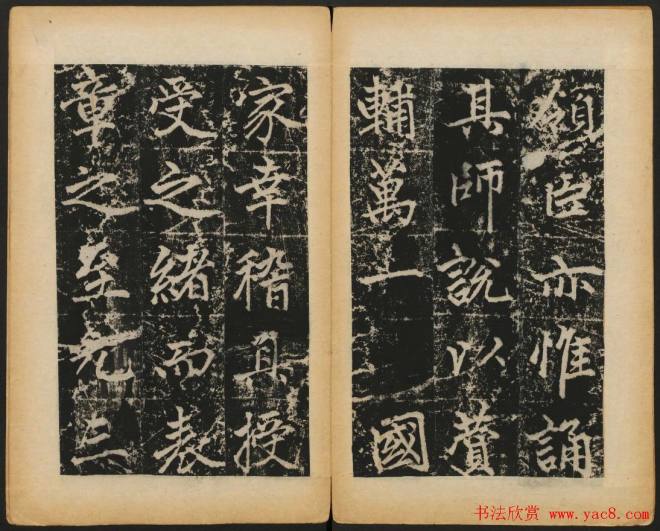 領臣亦惟誦
其師說以贊
輔萬一國
家幸稽其授
受之緒而表
章之至元三
书法欣赏
www.yac8.com